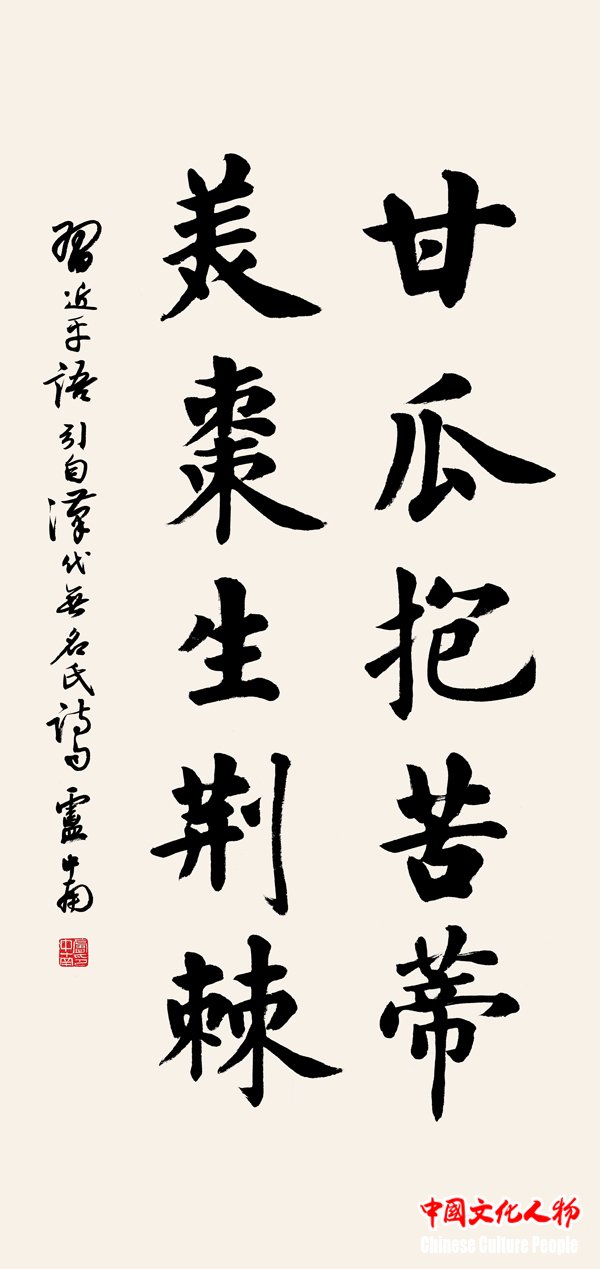 甘瓜抱苦蒂
美棗生荆棘
習近平語引自漢代無名氏詩句 盧中南
中國文化人物
Chinese Culture People